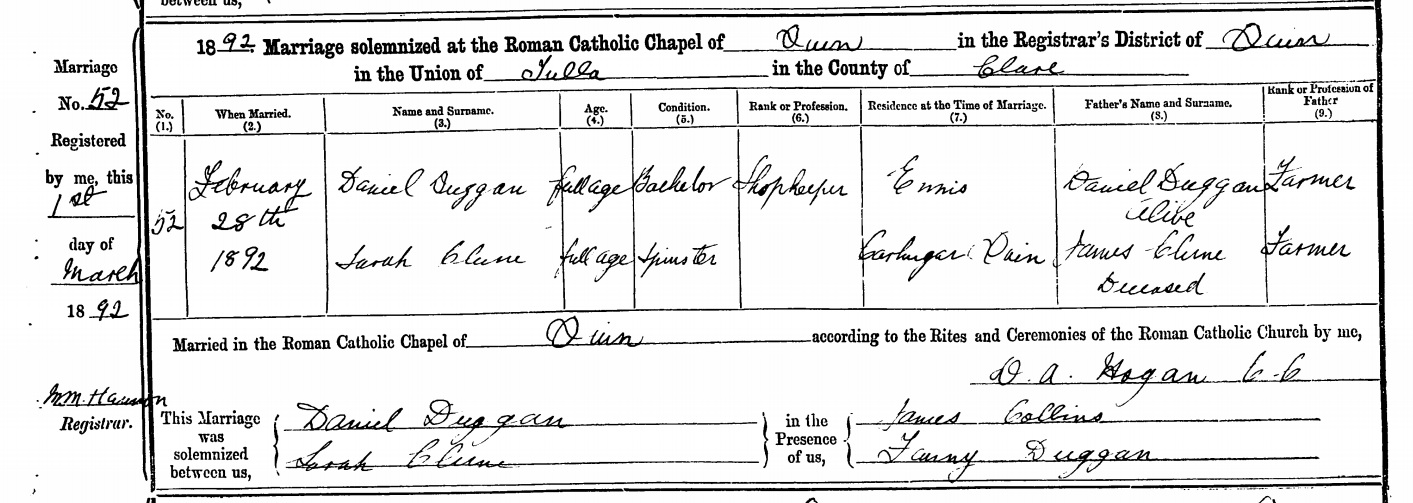 between us,
1892 Marriage solemnized at the Roman Catholic Chapel of Quin in the Registrar's District of Quin
in the Union of Tulla in the County of Clare
Marriage
No. 52
Registered
by me, this
1st
day of
March
1892
Registrar.
No. (1.) When Married. (2.) Name and Surname. (3.) Age. (4.) Condition. (5.) Rank or Profession. (6.) Residence at the Time of Marriage. (7.) Father's Name and Surname. (8.) Rank or Profession of Father (9.)
52 February 28th 1892
Daniel Duggan full age Bachelor Shopkeeper Ennis Daniel Duggan alive Farmer
Sarah Clune full age Spinster Quin James Clune Deceased Farmer
Married in the Roman Catholic Chapel of Quin according to the Rites and Ceremonies of the Roman Catholic Church by me,
D. A. Hogan C C
This Marriage was solemnized between us,
Daniel Duggan
Sarah Clune
in the Presence of us,
James Collins
Fanny Duggan